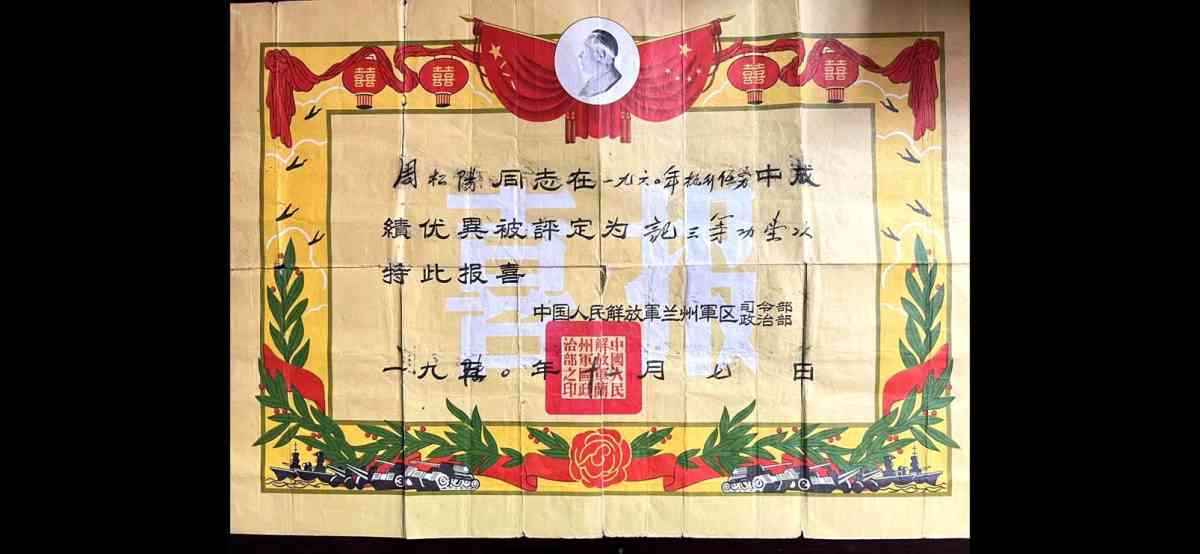 囍 囍 囍 囍
報喜
周松陽同志在一九六〇年执行任务中成
績优異被評定为記三等功壹次
特此报喜
中国人民解放軍兰州軍区司令部
政治部
一九六〇年十一月七日
中國人民解放軍蘭州軍區政治部之印